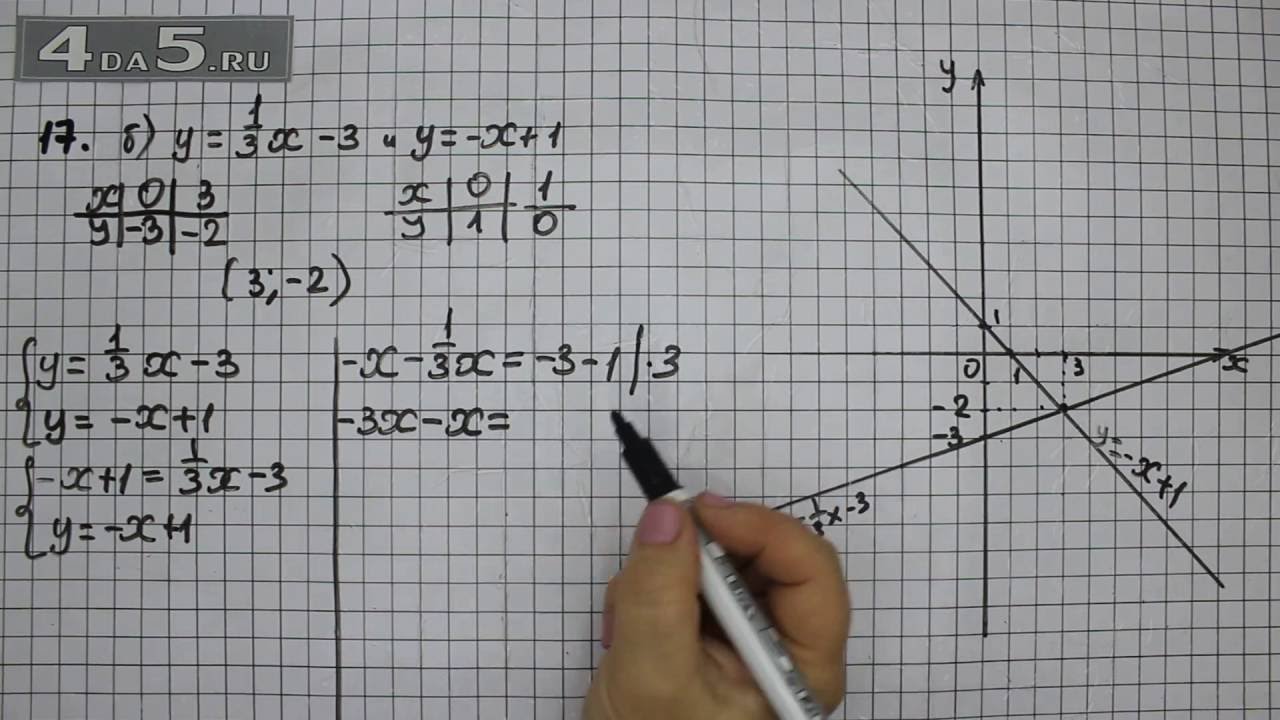 4DA5.RU
17. б) y = 1/3 x - 3 и y = -x + 1
x | 0 | 3
y | -3 | -2
x | 0 | 1
y | 1 | 0
(3; -2)
{ y = 1/3 x - 3
{ y = -x + 1
{ -x + 1 = 1/3 x - 3
{ y = -x + 1
-x - 1/3 x = -3 - 1 | · 3
-3x - x =
y
1
0
1
3
x
-2
-3
y = -x + 1
1/3 x - 3